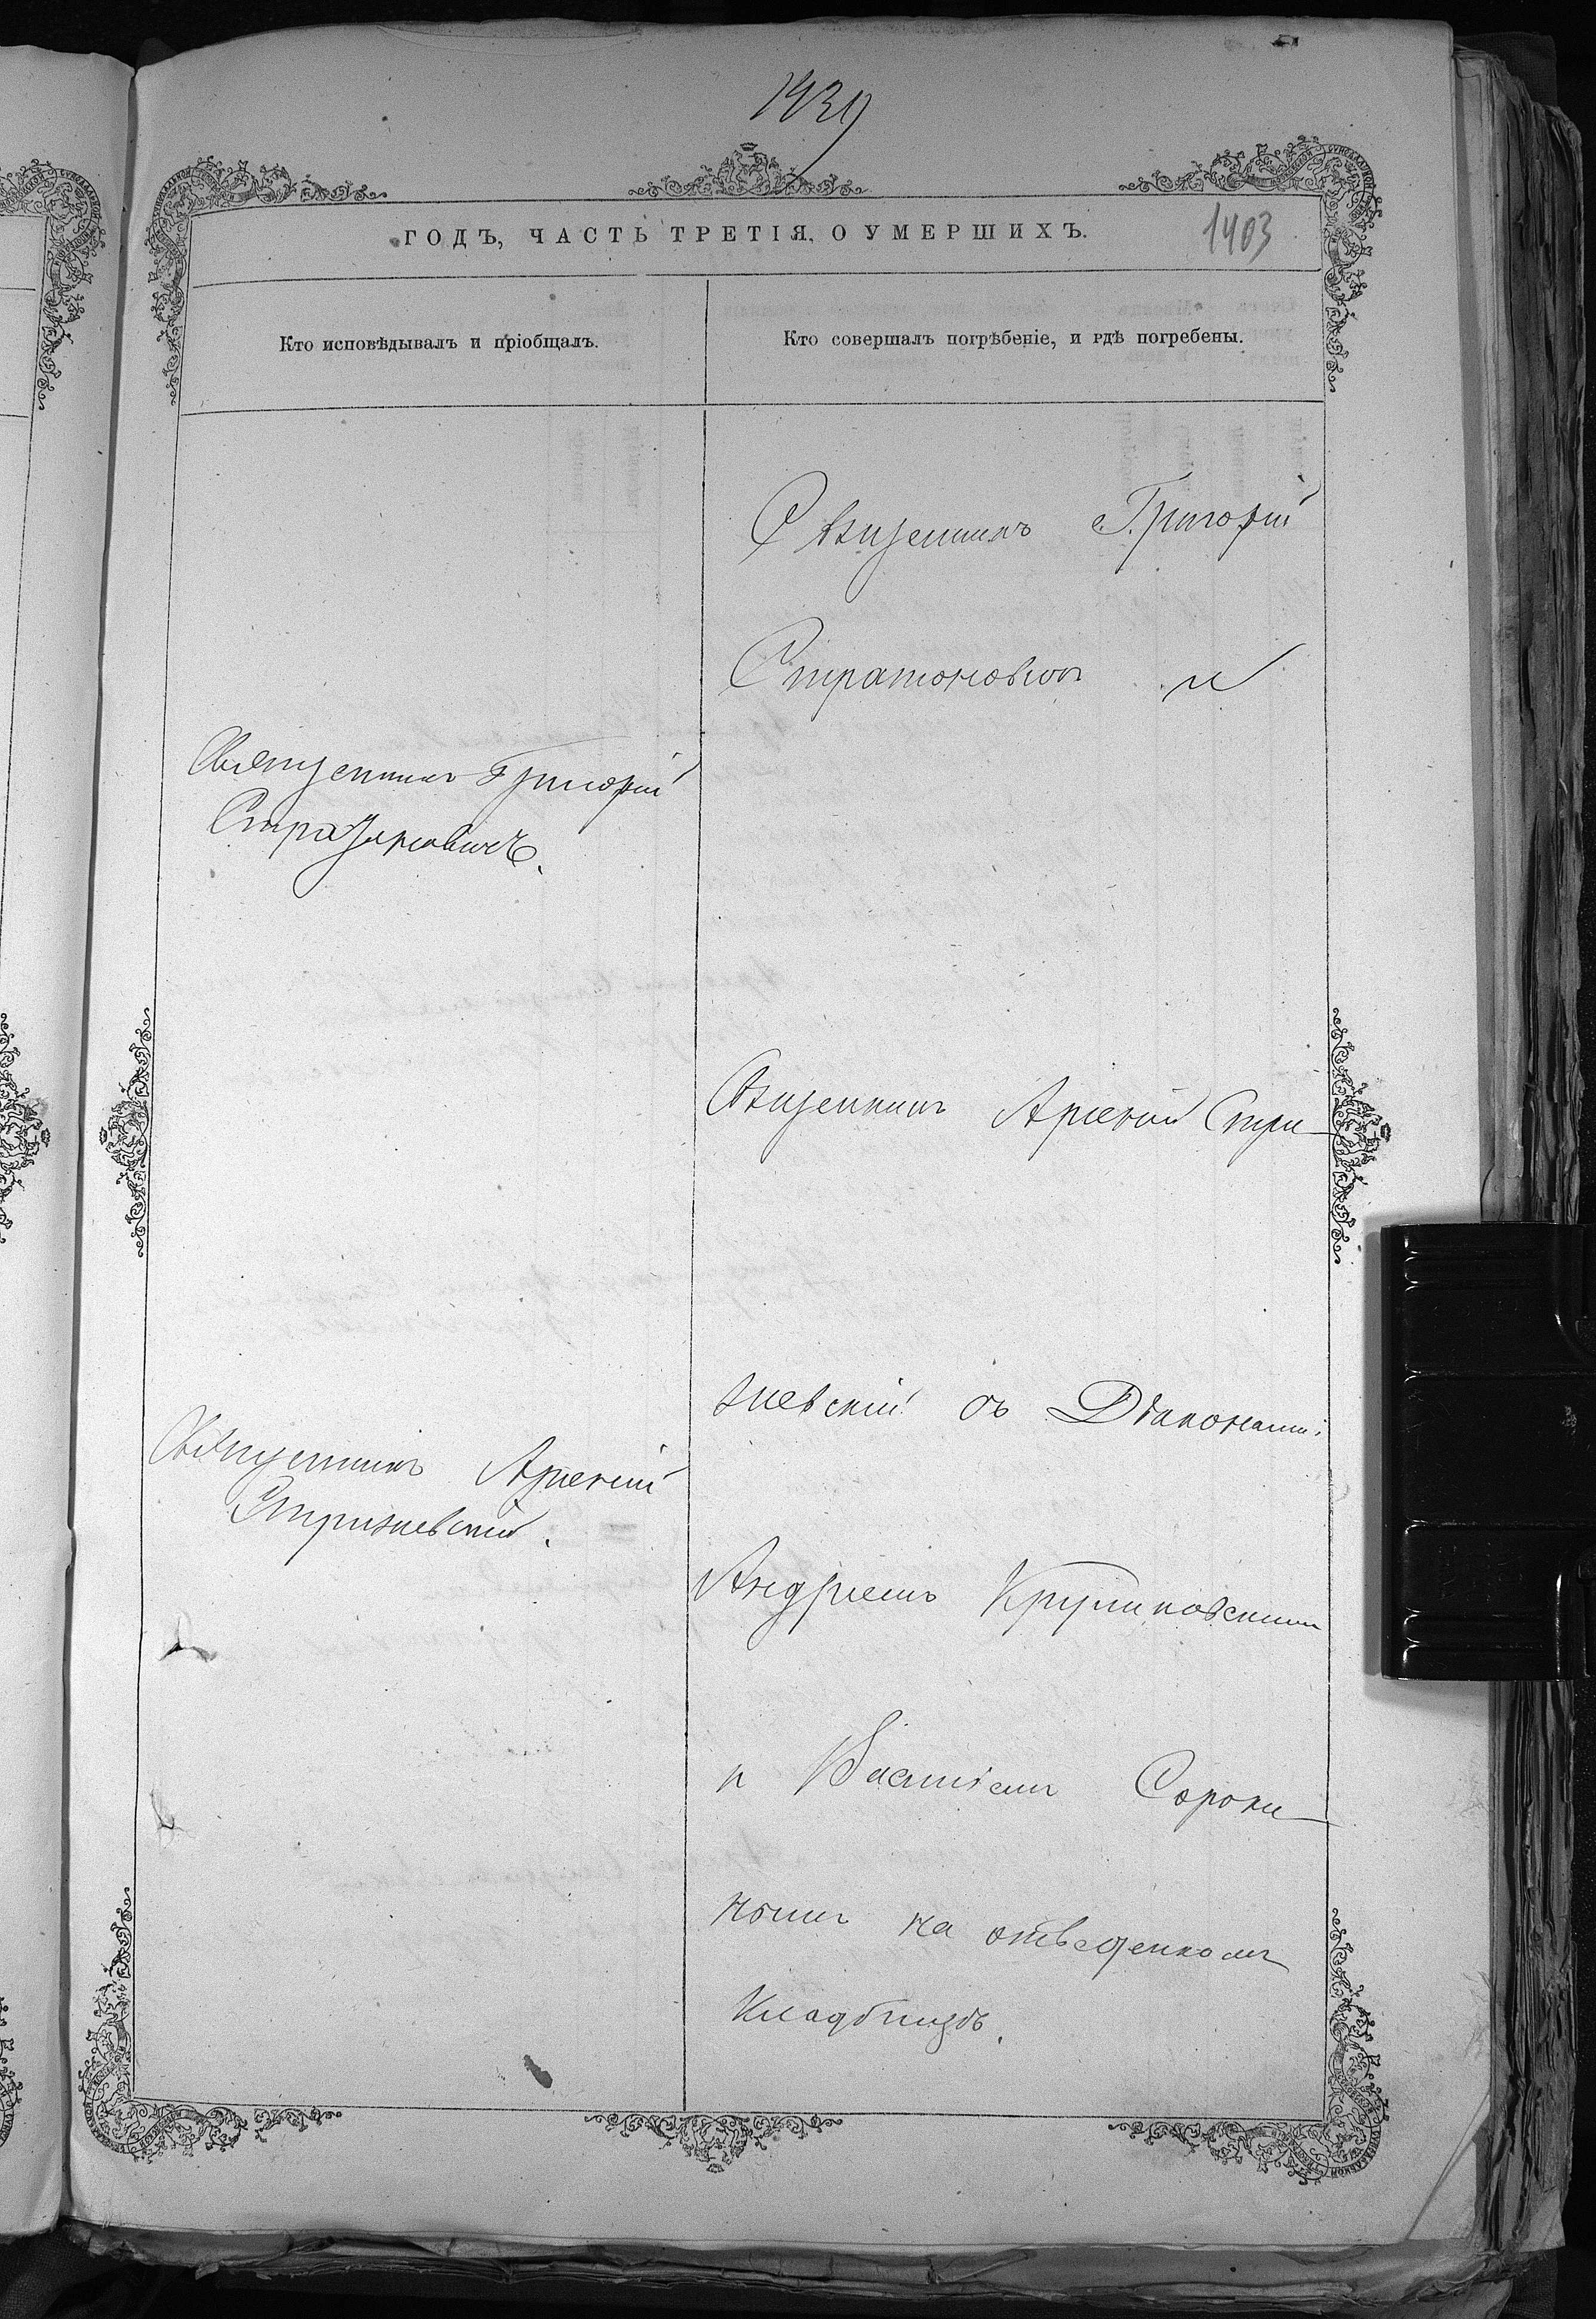 1439
ГОДЪ, ЧАСТЬ ТРЕТІЯ, О УМЕРШИХЪ.
1403
Кто исповѣдывалъ и пріобщалъ.
Кто совершалъ погрѣбеніе, и гдѣ погребены.
Священникъ Григорій
Стратоновичъ и
Священникъ Григорій
Стратоновичъ.
Священникъ Арсеній Стри-
жевскій съ Діаконами:
Священникъ Арсеній
Стрижевскій.
Андреемъ Круликовскимъ
и Василіемъ Сороки-
нымъ на отведенномъ
Кладбищѣ.